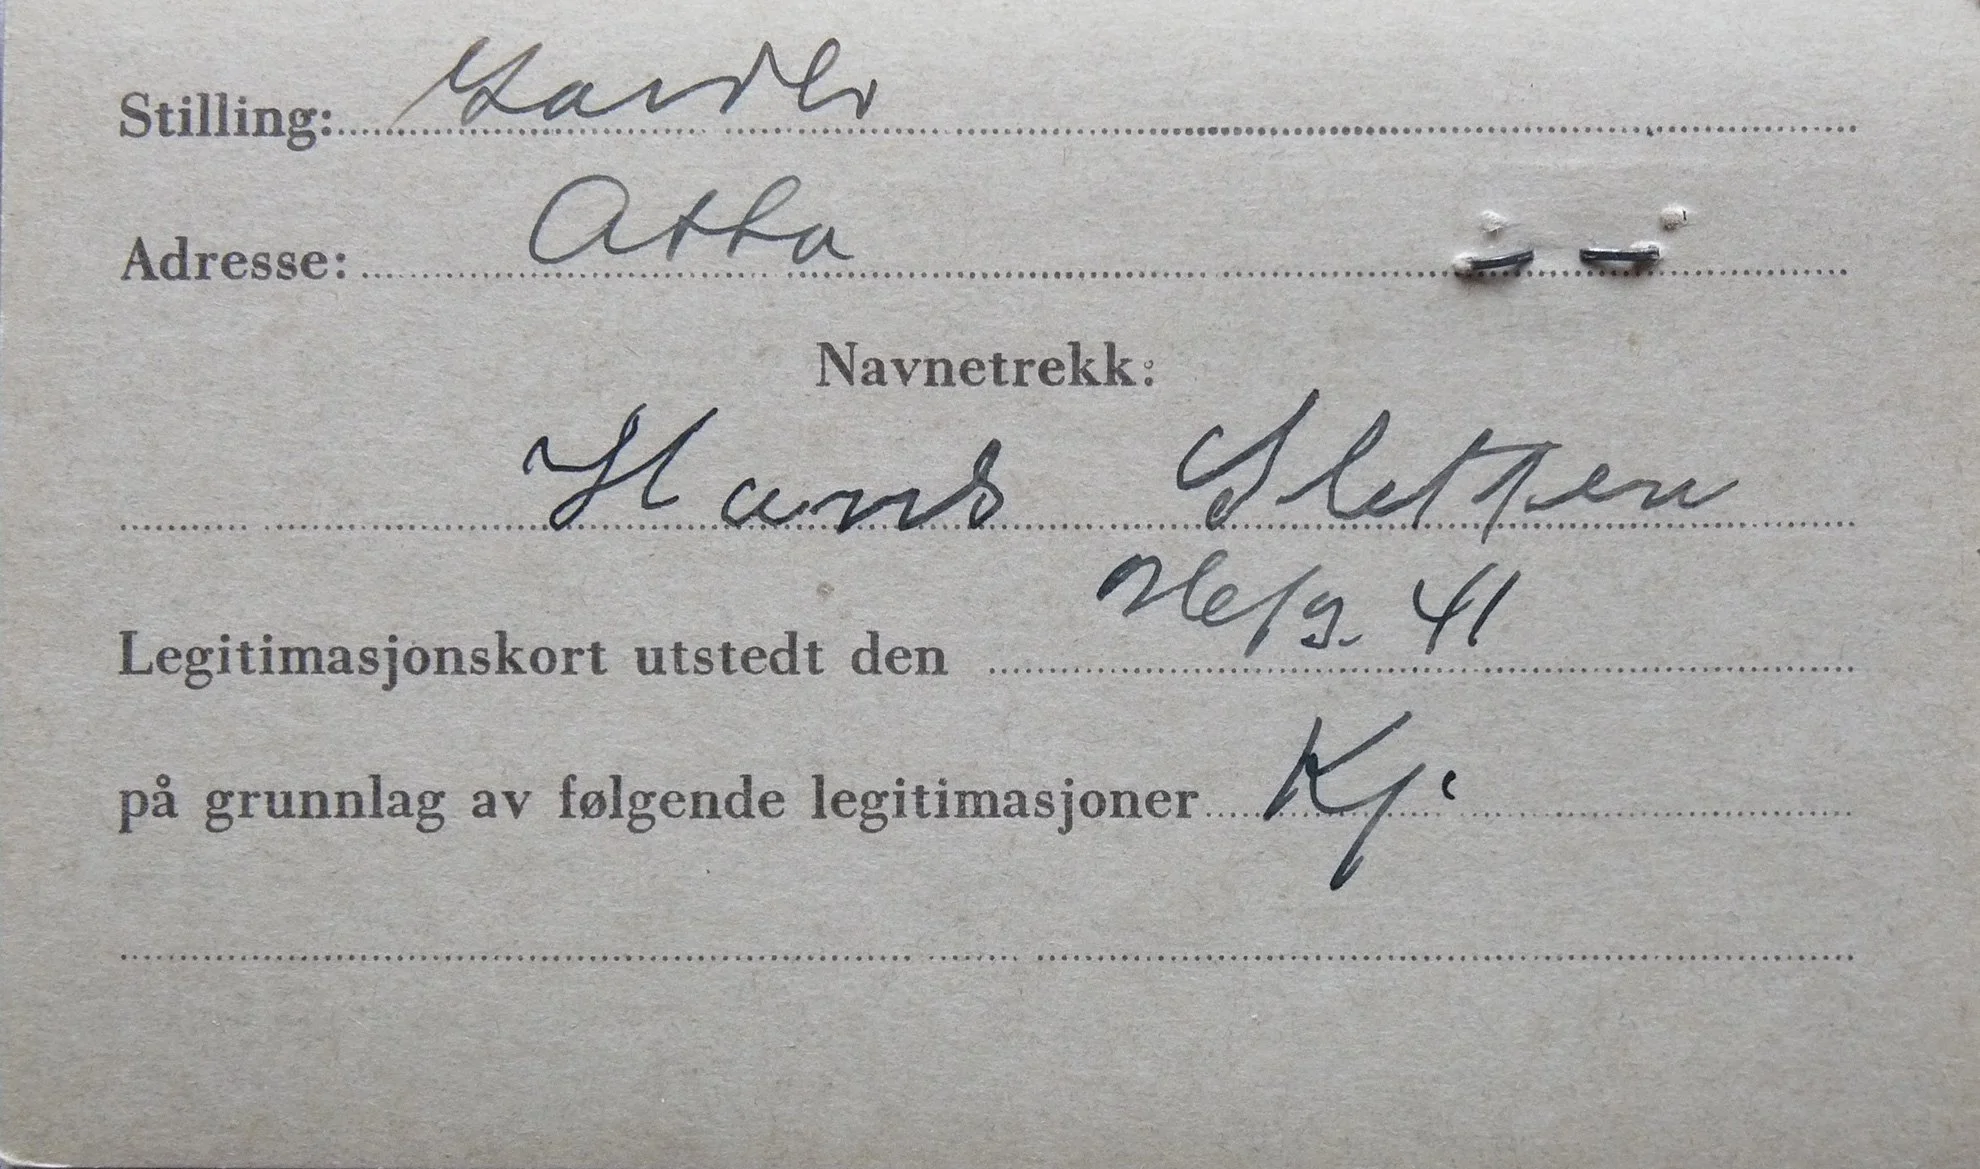 Stilling:
Adresse: Atta
Navnetrekk:
Hans Sletten
Legitimasjonskort utstedt den 41
på grunnlag av følgende legitimasjoner Kj.